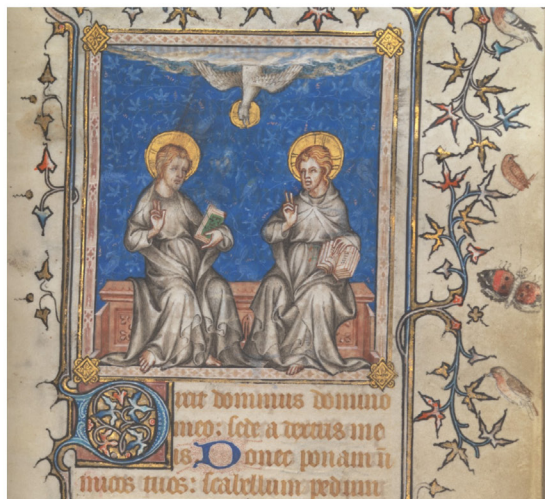 Dixit dominus domino
meo: sede a dextris me
is Donec ponam ini
micos tuos: scabellum pedum